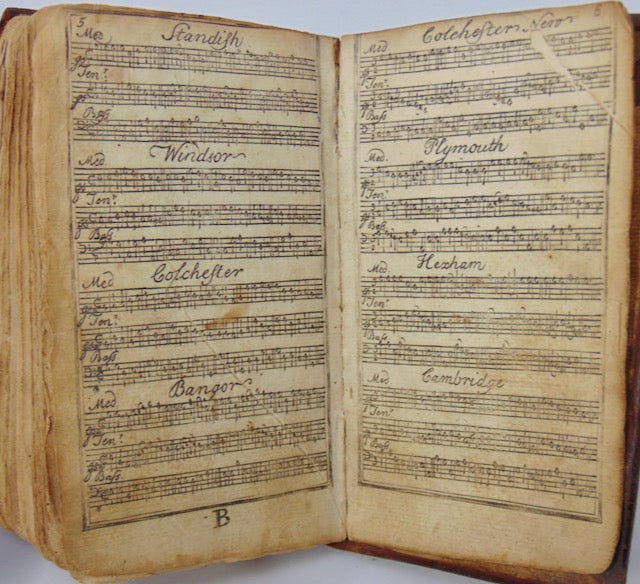 5
Standiſh
Med
Ten.r
Baſs
Windsor
Med
Ten.r
Baſs
Colcheſter
Med
Ten.r
Baſs
Bangor
Med
Ten.r
Baſs
B
6
Colcheſter New
Med
Ten.r
Baſs
Plymouth
Med.
Ten.r
Baſs
Hexham
Med
Ten.r
Baſs
Cambridge
Med
Ten.r
Baſs